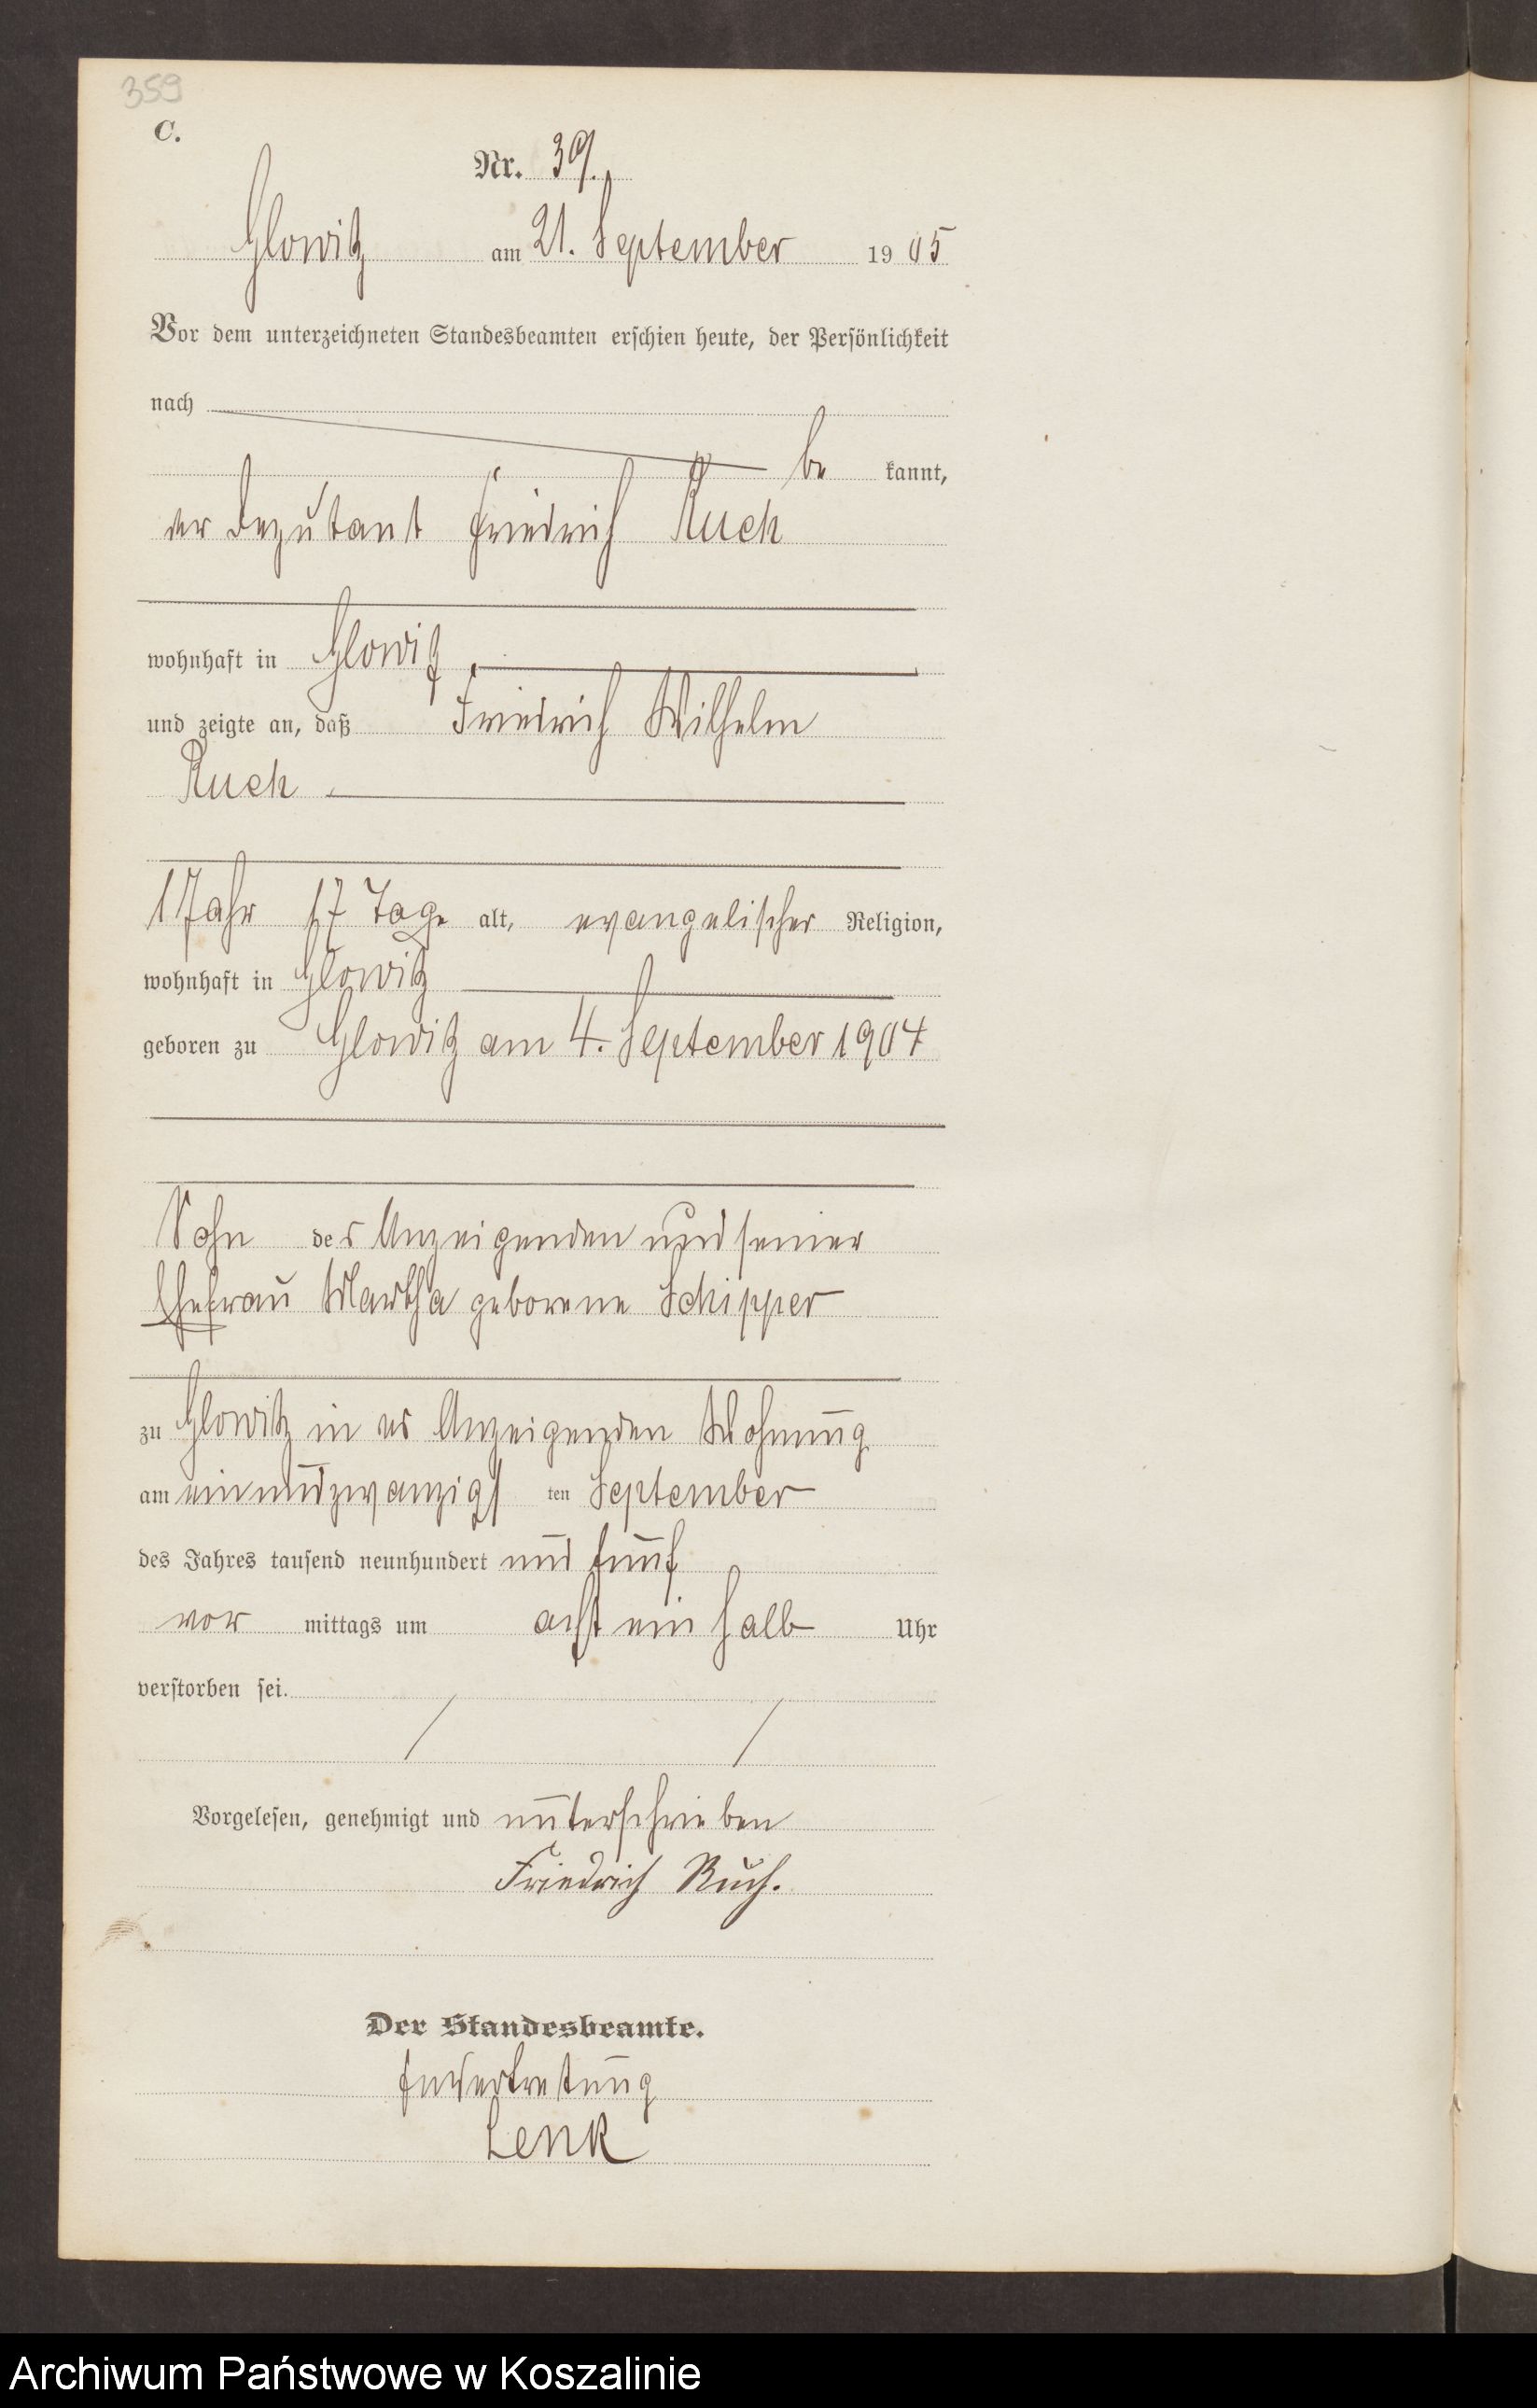 359
C.
Nr. 39.
Glowitz am 21. September 1905
Vor dem unterzeichneten Standesbeamten erschien heute, der Persönlichkeit
nach
be kannt,
der Deputant Friedrich Ruch
wohnhaft in Glowitz,
und zeigte an, daß Friedrich Wilhelm
Ruch
1 Jahr 17 Tage alt, evangelischer Religion,
wohnhaft in Glowitz
geboren zu Glowitz am 4. September 1904
Sohn des Anzeigenden und seiner
Ehefrau Martha geborene Schipper
zu Glowitz in des Anzeigenden Wohnung
am einundzwanzigs ten September
des Jahres tausend neunhundert und fünf
vor mittags um acht ein halb Uhr
verstorben sei.
Vorgelesen, genehmigt und unterschrieben
Friedrich Ruch.
Der Standesbeamte.
In Vertretung
Lenk
Archiwum Państwowe w Koszalinie